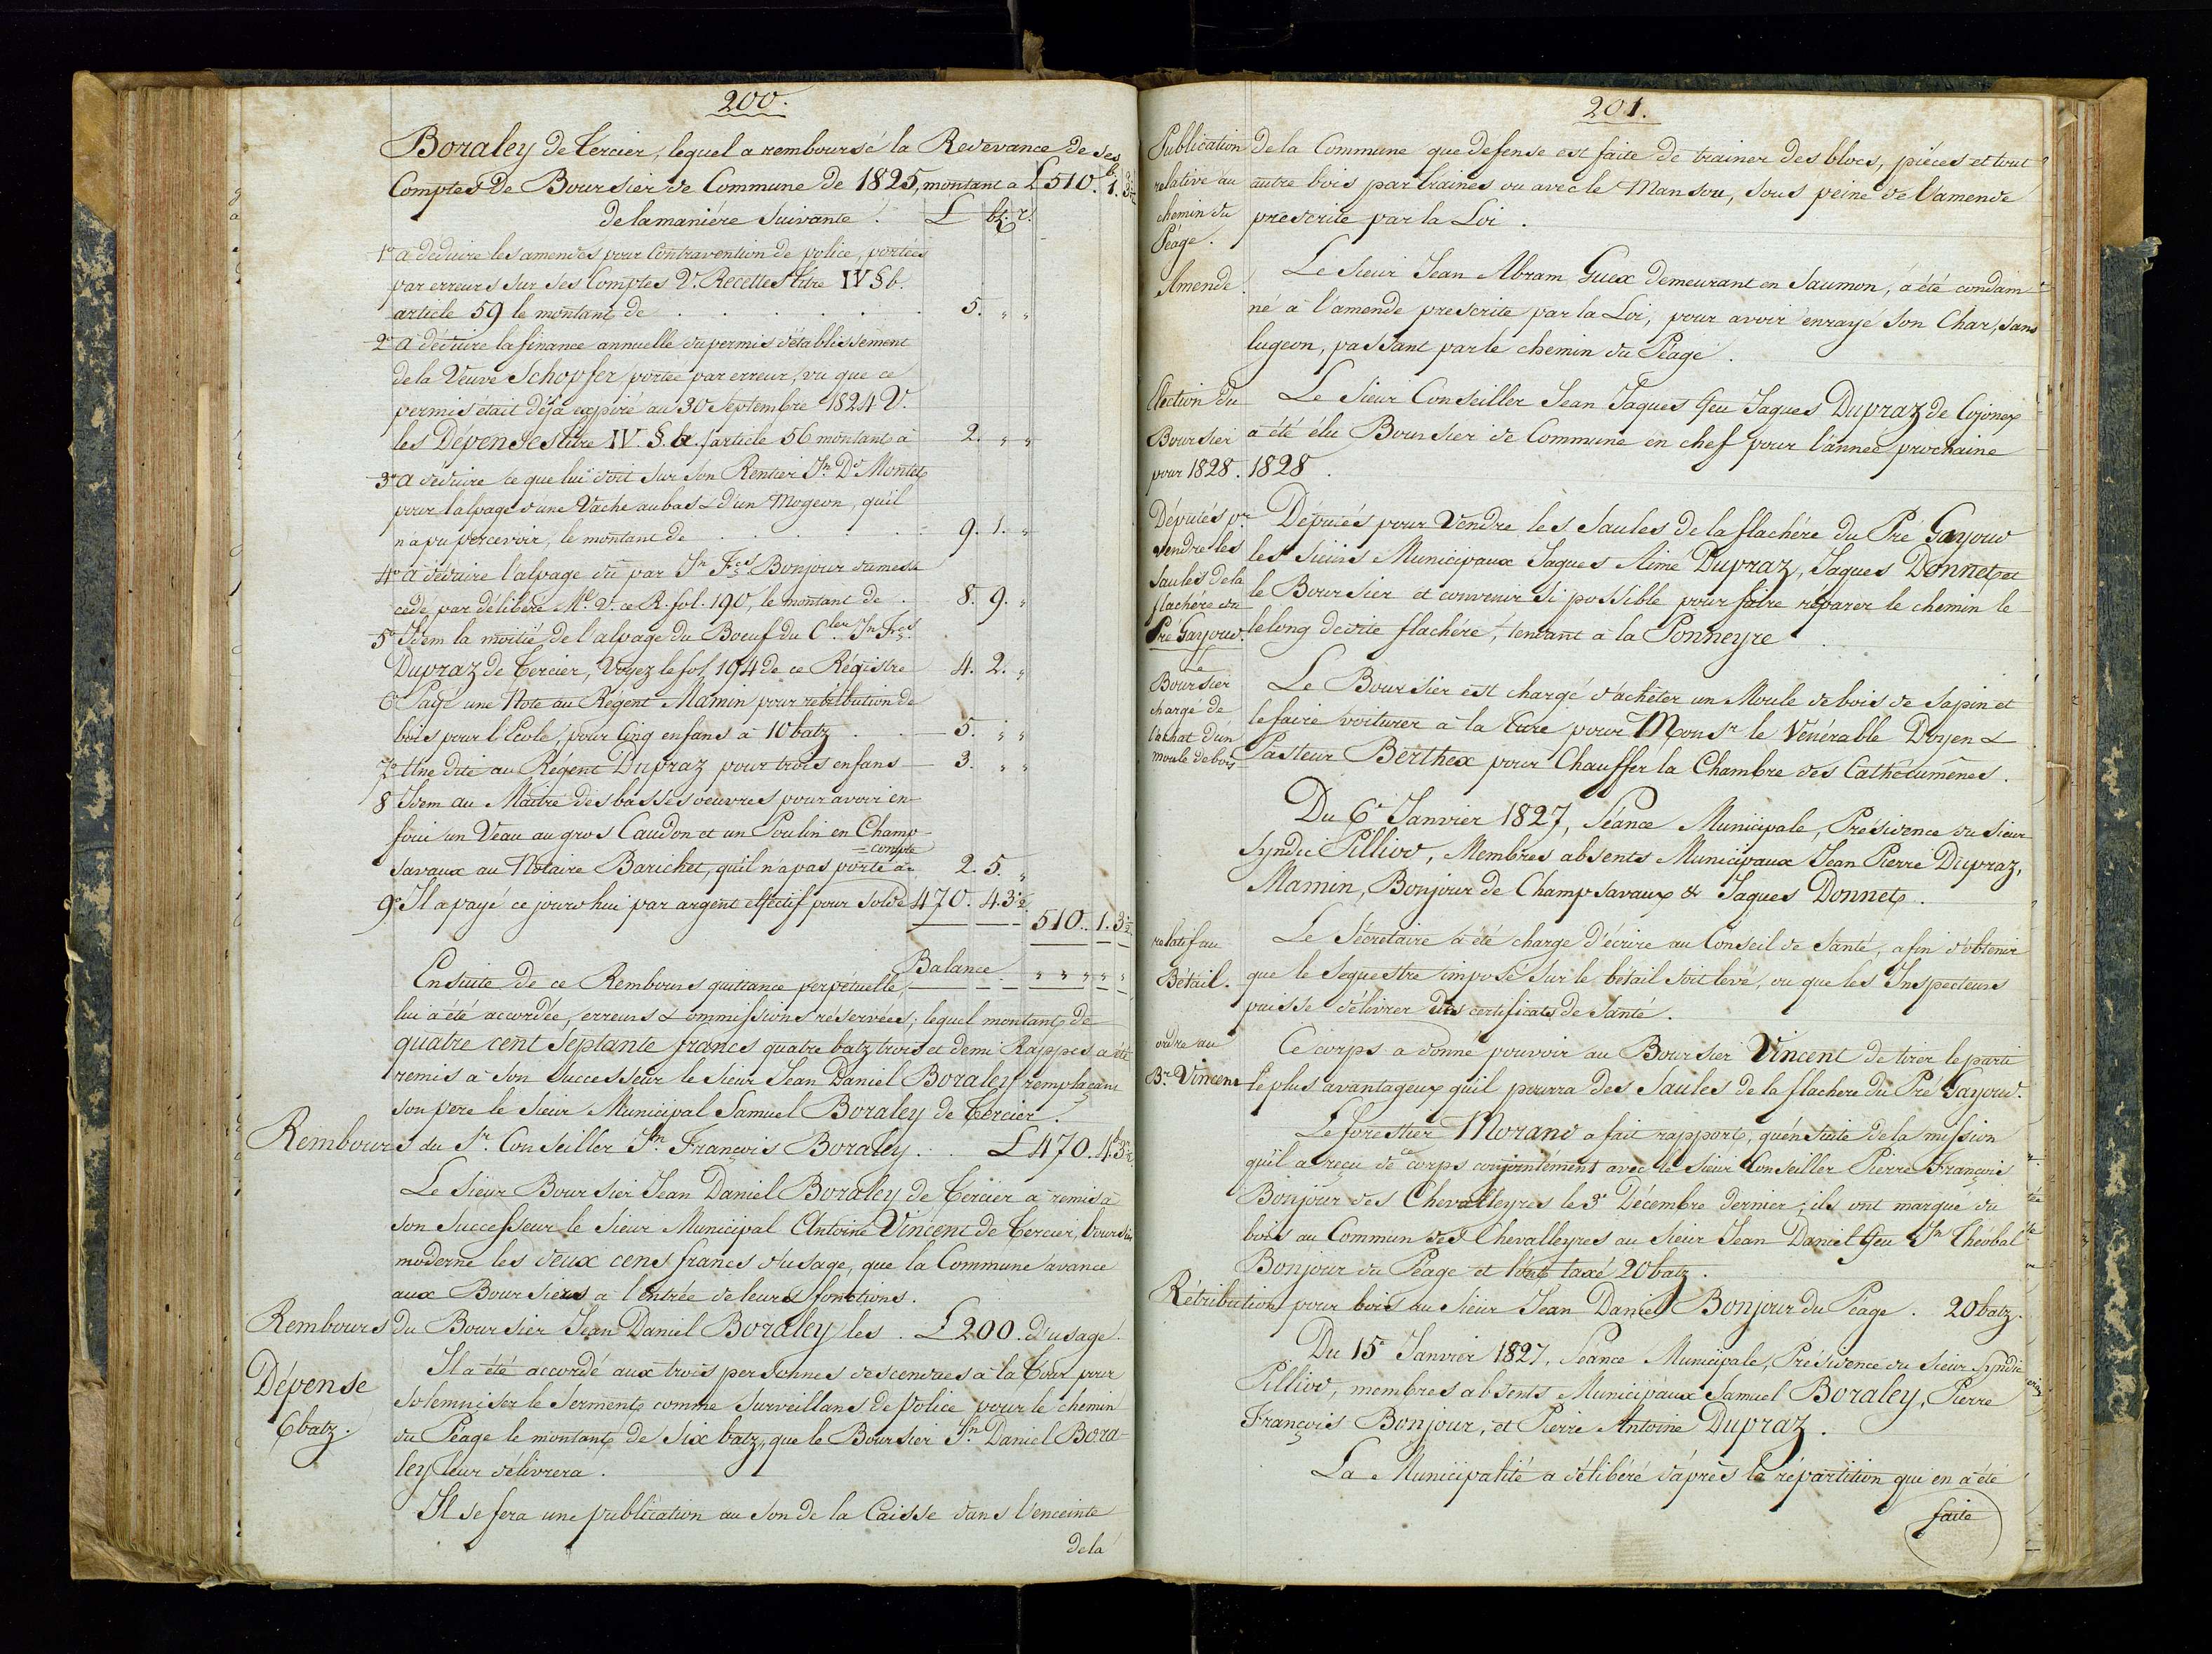 200.
Boraley de Tercier, lequel a remboursé la Redevance de ses
Comptes de Boursier de Commune de 1825, montant a £ 510. 1. 3½
de la maniére suivante. £ btz. r.
1° a déduire les amendes pour Contravention de police, portées
par erreurs sur ses Comptes V. Recettes titre IV § b.
article 59 le montant de . . . . . . 5. " "
2° a déduire la finance annuelle du permis d'établissement
de la Veuve Schopfer portée par erreur, vu que ce
permis était déja expiré au 30 Septembre 1824 V.
les Dépenses titre IV. §. b. article 56 montant à 2. " "
3° a déduire ce que lui doit sur son Rentier Jn Dd Montet
pour l'alpage d'une Vache au bas & d'un Mogeon, qu'il
n'a pu percevoir, le montant de . . . . . 9. 1. "
4° a déduire l'alpage dû par Jn Fçs Bonjour
cédé par délibéré Mle V. ce R. fol. 190, le montant de . 8. 9. "
5° Idem la moitié de l'alpage du Boeuf du Cler Jn Fçs
Dupraz de Tercier, Voyez le fol 194 de ce Régistre 4. 2. "
6° Payé une Note au Régent Mamin pour rétribution de
bois pour l'Ecole, pour Cinq enfans à 10 batz . . 5. " "
7° Une dite au Régent Dupraz pour trois enfans 3. " "
8 Idem au Maitre des basses oeuvres pour avoir en-
foui un Veau au gros Caudon et un Poulin en Champ-
savaux au Notaire Barichet, qu'il n'a pas porté à compte 2. 5. "
9° Il a payé ce jourd'hui par argent effectif pour solde 470. 4. 3½
510. 1. 3½
Balance " " " " "
Ensuite de ce Rembours quittance perpétuelle,
lui a été accordée, erreurs & ommissions réservées; lequel montant de
quatre cent septante francs quatre batz trois et demi Rappes a été
remis à son successeur le sieur Jean Daniel Boraley remplaçant
son pere le sieur Municipal Samuel Boraley de Tercier.
Rembours du Sr. Conseiller Jn François Boraley . . £ 470. 4. 3½
Le sieur Boursier Jean Daniel Boraley de Tercier a remis a
son successeur le sieur Municipal Antoine Vincent de Tercier, boursier
moderne les deux cens francs d'usage, que la Commune avance
aux Boursiers a l'entrée de leurs fonctions.
Rembours du Boursier Jean Daniel Boraley les . £ 200. d'usage.
Dépense
6 batz.
Il a été accordé aux trois personnes descendues à la Tour pour
solemniser le serment comme surveillans de police pour le chemin
du Péage le montant de six batz, que le Boursier Jn Daniel Bora-
ley leur délivrera.
Il se fera une publication au son de la Caisse dans l'enceinte
de la
201.
Publication
relative au
chemin du
Péage.
de la Commune que defense est faite de trainer des blocs, piéces et tout
autre bois par traines ou avec le Mansou, sous peine de l'amende
prescrite par la Loi.
Amende.
Le sieur Jean Abram Guex demeurant en Saumon, a été condam-
né à l'amende prescrite par la Loi, pour avoir enrayé son Char, sans
lugeon, passant par le chemin du Péage.
Election du
Boursier
pour 1828.
Le Sieur Conseiller Jean Jaques feu Jaques Dupraz de Cojonex
a été élu Boursier de Commune en chef pour l'année prochaine
1828.
Députés pr
vendre les
saules de la
flachére du
Pré Gayoud.
Députés pour Vendre les saules de la flachére du Pré Gayoud
les sieurs Municipaux Jaques Aimé Dupraz, Jaques Donnet et
le Boursier et convenir si possible pour faire réparer le chemin le
le long de dite flachére, tendant à la Ponneyre.
Le
Boursier
chargé de
l'achat d'un
moule de bois
Le Boursier est chargé d'achêter un Moule de bois de sapin et
le faire voiturer à la Cure pour Monsr le Vénérable Doyen &
Pasteur Berthex pour Chauffer la Chambre des Cathécumênes.
Du 6e Janvier 1827, Séance Municipale, Présidence du sieur
Syndic Pilliod, Membres absents Municipaux Jean Pierre Dupraz,
Mamin, Bonjour de Champsavaux & Jaques Donnet.
relatif au
Bétail.
Le Sécretaire a été chargé d'écrire au Conseil de Santé, afin d'obtenir
que le sequestre imposé sur le bétail soit levé, ou que les Inspecteurs
puisse délivrer des certificats de santé.
ordre au
Br. Vincent
Ce corps a donné pouvoir au Boursier Vincent de tirer le parti
le plus avantageux qu'il pourra des saules de la flachere du Pré Gayoud.
Le forestier Morand a fait rapport, qu'ensuite de la mission
qu'il a reçu de ce corps conjointément avec le sieur Conseiller Pierre François
Bonjour des Chevalleyres le 3e Décembre dernier, ils ont marqué du
bois au Commun des Chevalleyres au sieur Jean Daniel feu Jn Théobal
Bonjour du Péage et l'ont taxé 20 batz.
Rétribution pour bois au sieur Jean Daniel Bonjour du Péage . 20 batz.
Du 15e Janvier 1827, Séance Municipale, Présidence du Sieur Syndic
Pilliod, membres absents Municipaux Samuel Boraley, Pierre
François Bonjour, et Pierre Antoine Dupraz.
La Municipalité a délibéré d'après la répartition qui en a été
faite